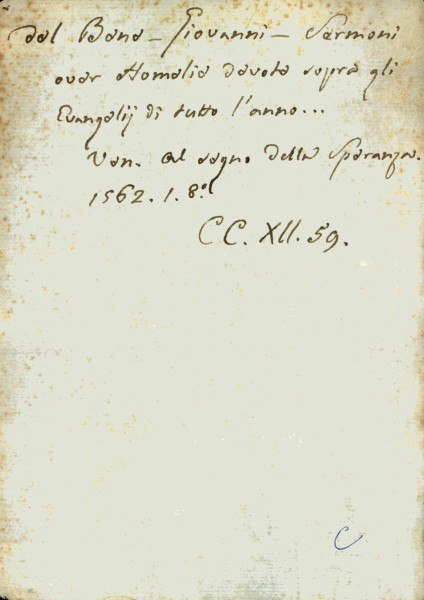 dal Bene - Giovanni - Sermoni
over Homelie devote sopra gli
Evangelij di tutto l'anno...
Ven. al segno della Speranza.
1562. 1. 8.º
CC. XII. 59.
C